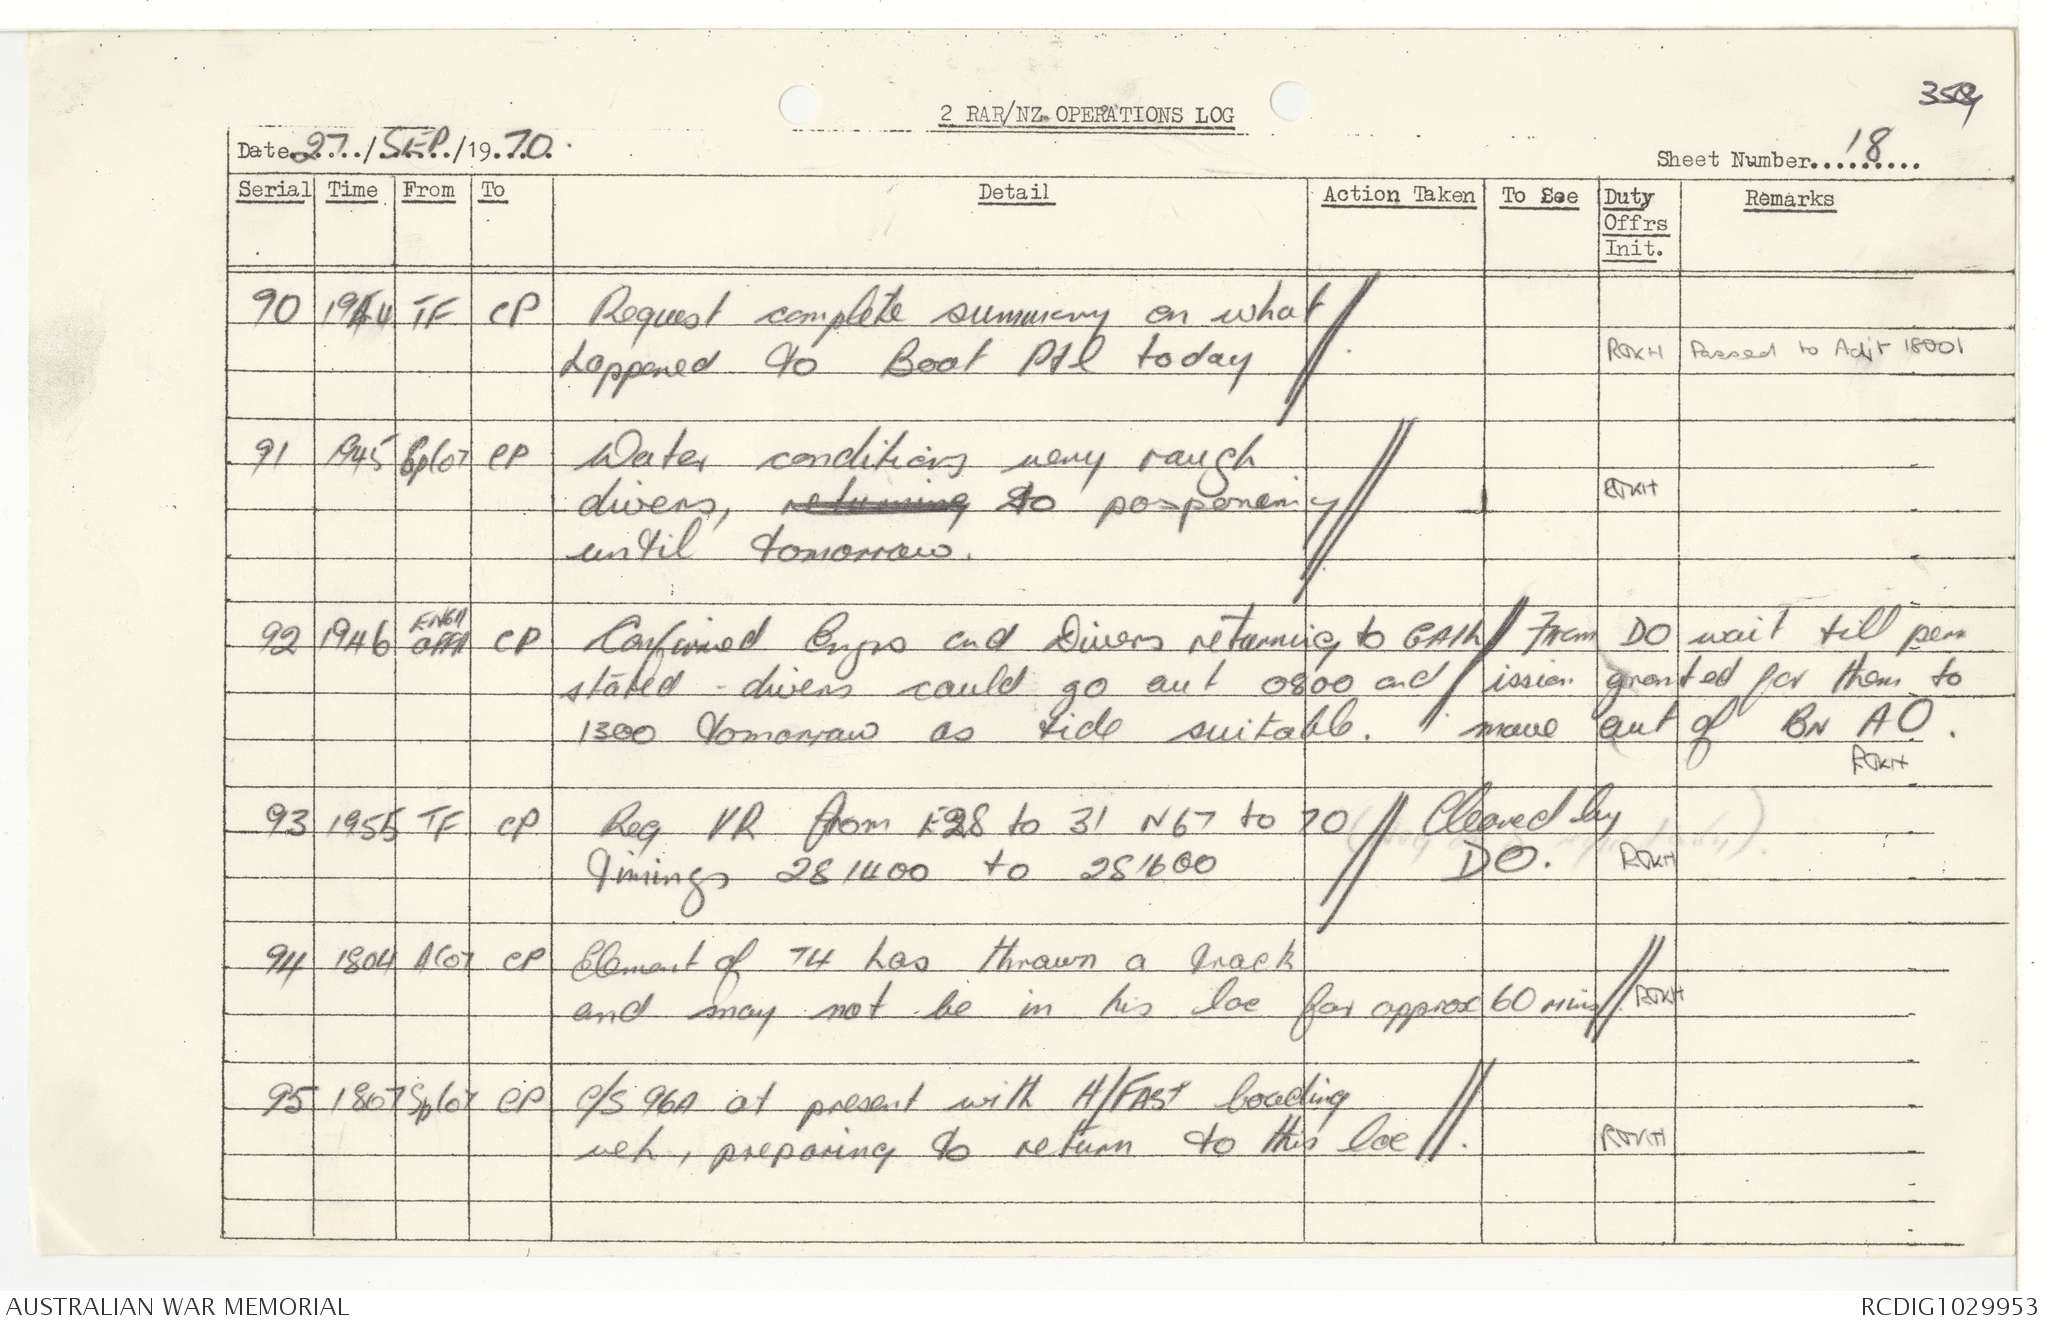 2 RAR/NZ OPERATIONS LOG
Date 27/SEP/1970.
Sheet Number 18
Serial Time From To Detail Action Taken To See Duty Offrs Init. Remarks
90 TF CP Request complete summary on what
happened to Boat Ptl today // RJKH Passed to Adjt
91 1945 CP Water conditions very rough
divers, returning to posponening // RJKH
until tomorrow.
92 1946 ENGR OFFR CP Confirmed Engrs and Divers returning to // From DO wait till perm
stated - divers could go out 0800 and ission granted for them to
1300 tomorrow as tide suitable. move out of BN AO.
RJKH
93 1955 TF CP Req VR from E28 to 31 N67 to 70 // Cleared by
Timings 281400 to 281600 DO. RJKH
94 1804 CP Element of T4 has thrown a track
and may not be in his loc for approx 60 mins // RJKH
95 1807 CP C/S 96A at present with H/FAST loading
veh, preparing to return to this loc //. RJKH
AUSTRALIAN WAR MEMORIAL
RCDIG1029953